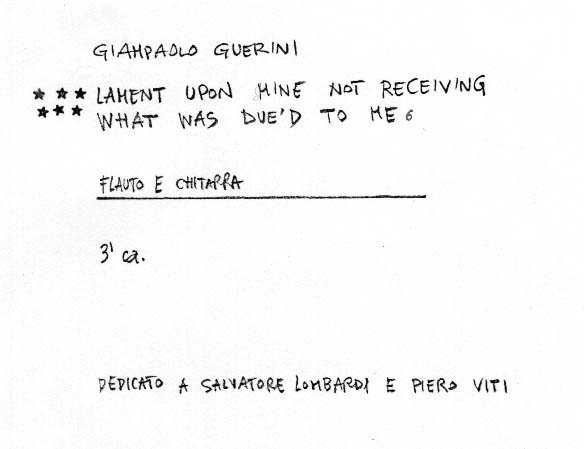 GIAMPAOLO GUERINI
★ ★ ★ LAMENT UPON MINE NOT RECEIVING
★ ★ ★ WHAT WAS DUE'D TO ME 6
FLAUTO E CHITARRA
3' ca.
DEDICATO A SALVATORE LOMBARDI E PIERO VITI